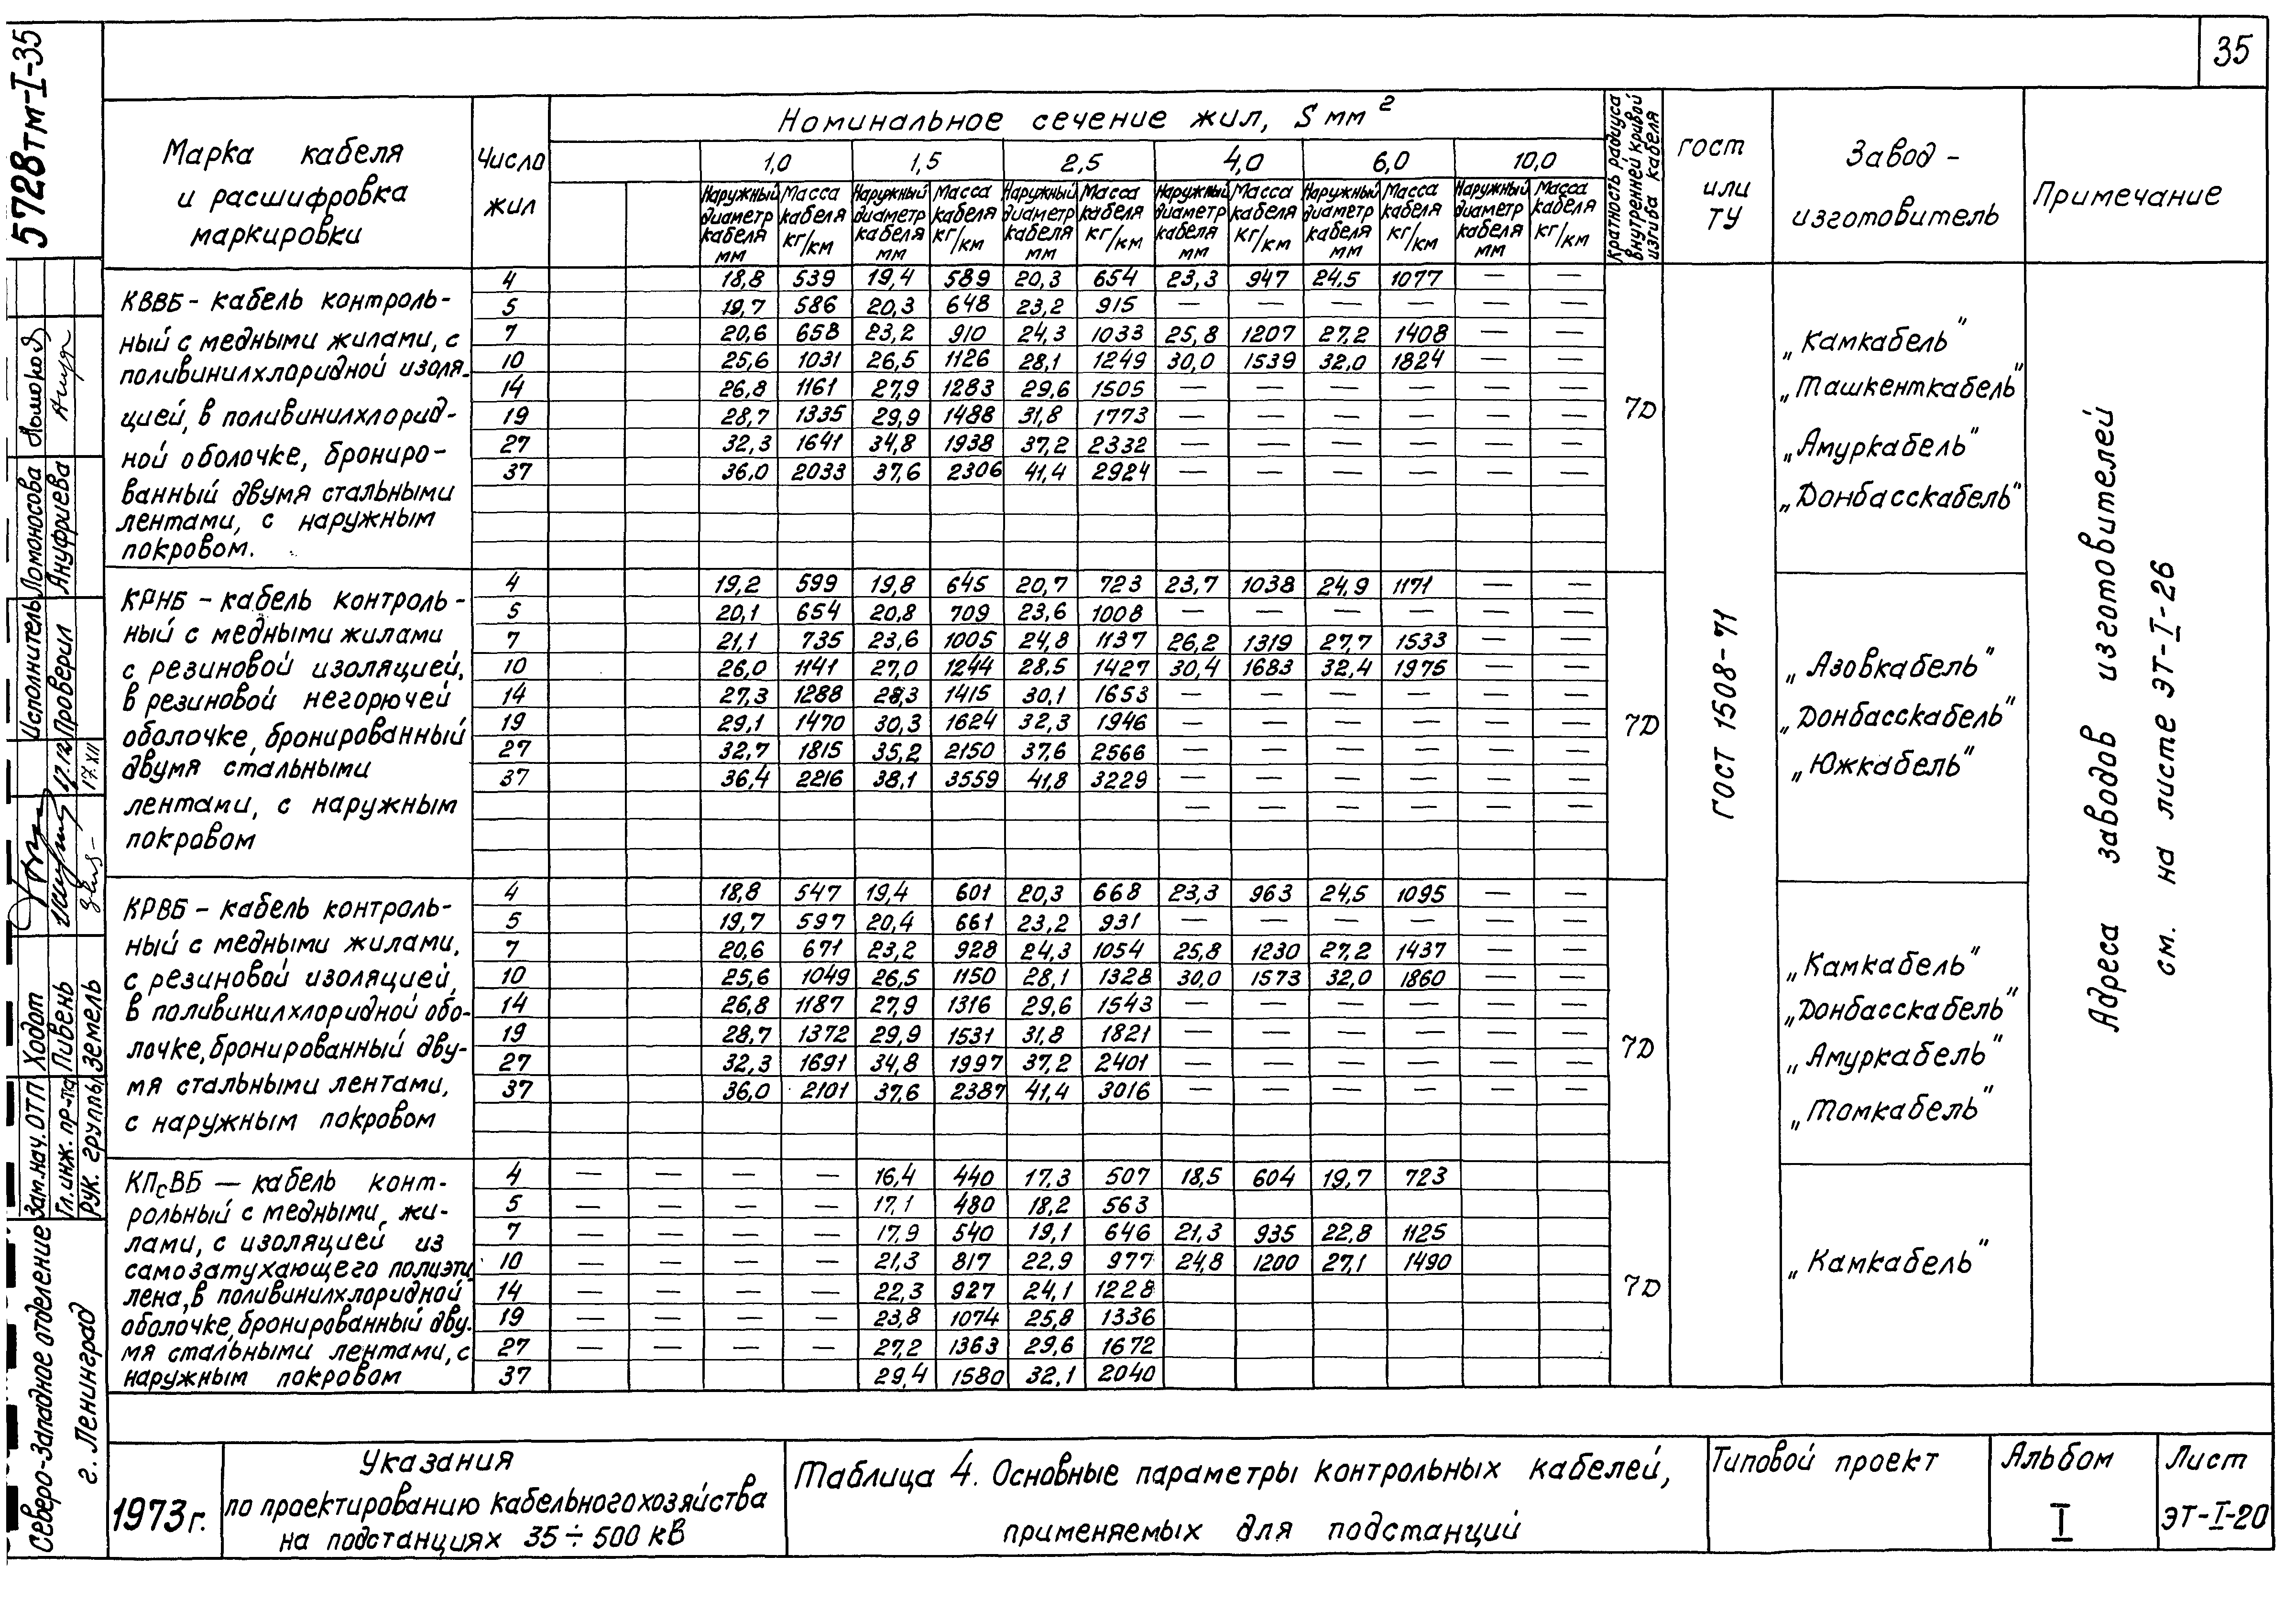 35
5728тм-I-35
Марка кабеля и расшифровка маркировки
Число жил
Номинальное сечение жил, S мм²
1,0 1,5 2,5 4,0 6,0 10,0
Наружный диаметр кабеля мм Масса кабеля кг/км Наружный диаметр кабеля мм Масса кабеля кг/км Наружный диаметр кабеля мм Масса кабеля кг/км Наружный диаметр кабеля мм Масса кабеля кг/км Наружный диаметр кабеля мм Масса кабеля кг/км Наружный диаметр кабеля мм Масса кабеля кг/км
Кратность радиуса внутренней кривой изгиба кабеля
ГОСТ или ТУ
Завод-изготовитель
Примечание
КВВБ - кабель контроль-
ный с медными жилами, с
поливинилхлоридной изоля-
цией, в поливинилхлорид-
ной оболочке, брониро-
ванный двумя стальными
лентами, с наружным
покровом.
4 18,8 539 19,4 589 20,3 654 23,3 947 24,5 1077 — —
5 19,7 586 20,3 648 23,2 915 — — — — — —
7 20,6 658 23,2 910 24,3 1033 25,8 1207 27,2 1408 — —
10 25,6 1031 26,5 1126 28,1 1249 30,0 1539 32,0 1824 — —
14 26,8 1161 27,9 1283 29,6 1505 — — — — — —
19 28,7 1335 29,9 1488 31,8 1773 — — — — — —
27 32,3 1641 34,8 1938 37,2 2332 — — — — — —
37 36,0 2033 37,6 2306 41,4 2924 — — — — — —
7D
„Камкабель"
„Ташкенткабель"
„Амуркабель"
„Донбасскабель"
КРНБ - кабель контроль-
ный с медными жилами
с резиновой изоляцией,
в резиновой негорючей
оболочке, бронированный
двумя стальными
лентами, с наружным
покровом
4 19,2 599 19,8 645 20,7 723 23,7 1038 24,9 1171 — —
5 20,1 654 20,8 709 23,6 1008 — — — — — —
7 21,1 735 23,6 1005 24,8 1137 26,2 1319 27,7 1533 — —
10 26,0 1141 27,0 1244 28,5 1427 30,4 1683 32,4 1975 — —
14 27,3 1288 28,3 1415 30,1 1653 — — — — — —
19 29,1 1470 30,3 1624 32,3 1946 — — — — — —
27 32,7 1815 35,2 2150 37,6 2566 — — — — — —
37 36,4 2216 38,1 3559 41,8 3229 — — — — — —
— — — — — —
7D
„Азовкабель"
„Донбасскабель"
„Южкабель"
КРВБ - кабель контроль-
ный с медными жилами,
с резиновой изоляцией,
в поливинилхлоридной обо-
лочке, бронированный дву-
мя стальными лентами,
с наружным покровом
4 18,8 547 19,4 601 20,3 668 23,3 963 24,5 1095 — —
5 19,7 597 20,4 661 23,2 931 — — — — — —
7 20,6 671 23,2 928 24,3 1054 25,8 1230 27,2 1437 — —
10 25,6 1049 26,5 1150 28,1 1328 30,0 1573 32,0 1860 — —
14 26,8 1187 27,9 1316 29,6 1543 — — — — — —
19 28,7 1372 29,9 1531 31,8 1821 — — — — — —
27 32,3 1691 34,8 1997 37,2 2401 — — — — — —
37 36,0 2101 37,6 2387 41,4 3016 — — — — — —
7D
„Камкабель"
„Донбасскабель"
„Амуркабель"
„Томкабель"
КПсВБ — кабель конт-
рольный с медными, жи-
лами, с изоляцией из
самозатухающего полиэти-
лена, в поливинилхлоридной
оболочке, бронированный дву-
мя стальными лентами, с
наружным покровом
4 — — — — 16,4 440 17,3 507 18,5 604 19,7 723
5 — — — — 17,1 480 18,2 563
7 — — — — 17,9 540 19,1 646 21,3 935 22,8 1125
10 — — — — 21,3 817 22,9 977 24,8 1200 27,1 1490
14 — — — — 22,3 927 24,1 1228
19 — — — — 23,8 1074 25,8 1336
27 — — — — 27,2 1363 29,6 1672
37 29,4 1580 32,1 2040
7D
„Камкабель"
ГОСТ 1508-71
Адреса заводов изготовителей
см. на листе ЭТ-I-26
Исполнитель Ломоносова
Проверил Ануфриева
17.XII
Зам.нач.ОТП Ходот
Гл.инж.пр-та Пивень
Рук. группы Земель
Северо-Западное отделение
г. Ленинград
1973г.
Указания
по проектированию кабельного хозяйства
на подстанциях 35÷500 кВ
Таблица 4. Основные параметры контрольных кабелей,
применяемых для подстанций
Типовой проект
Альбом
I
Лист
ЭТ-I-20